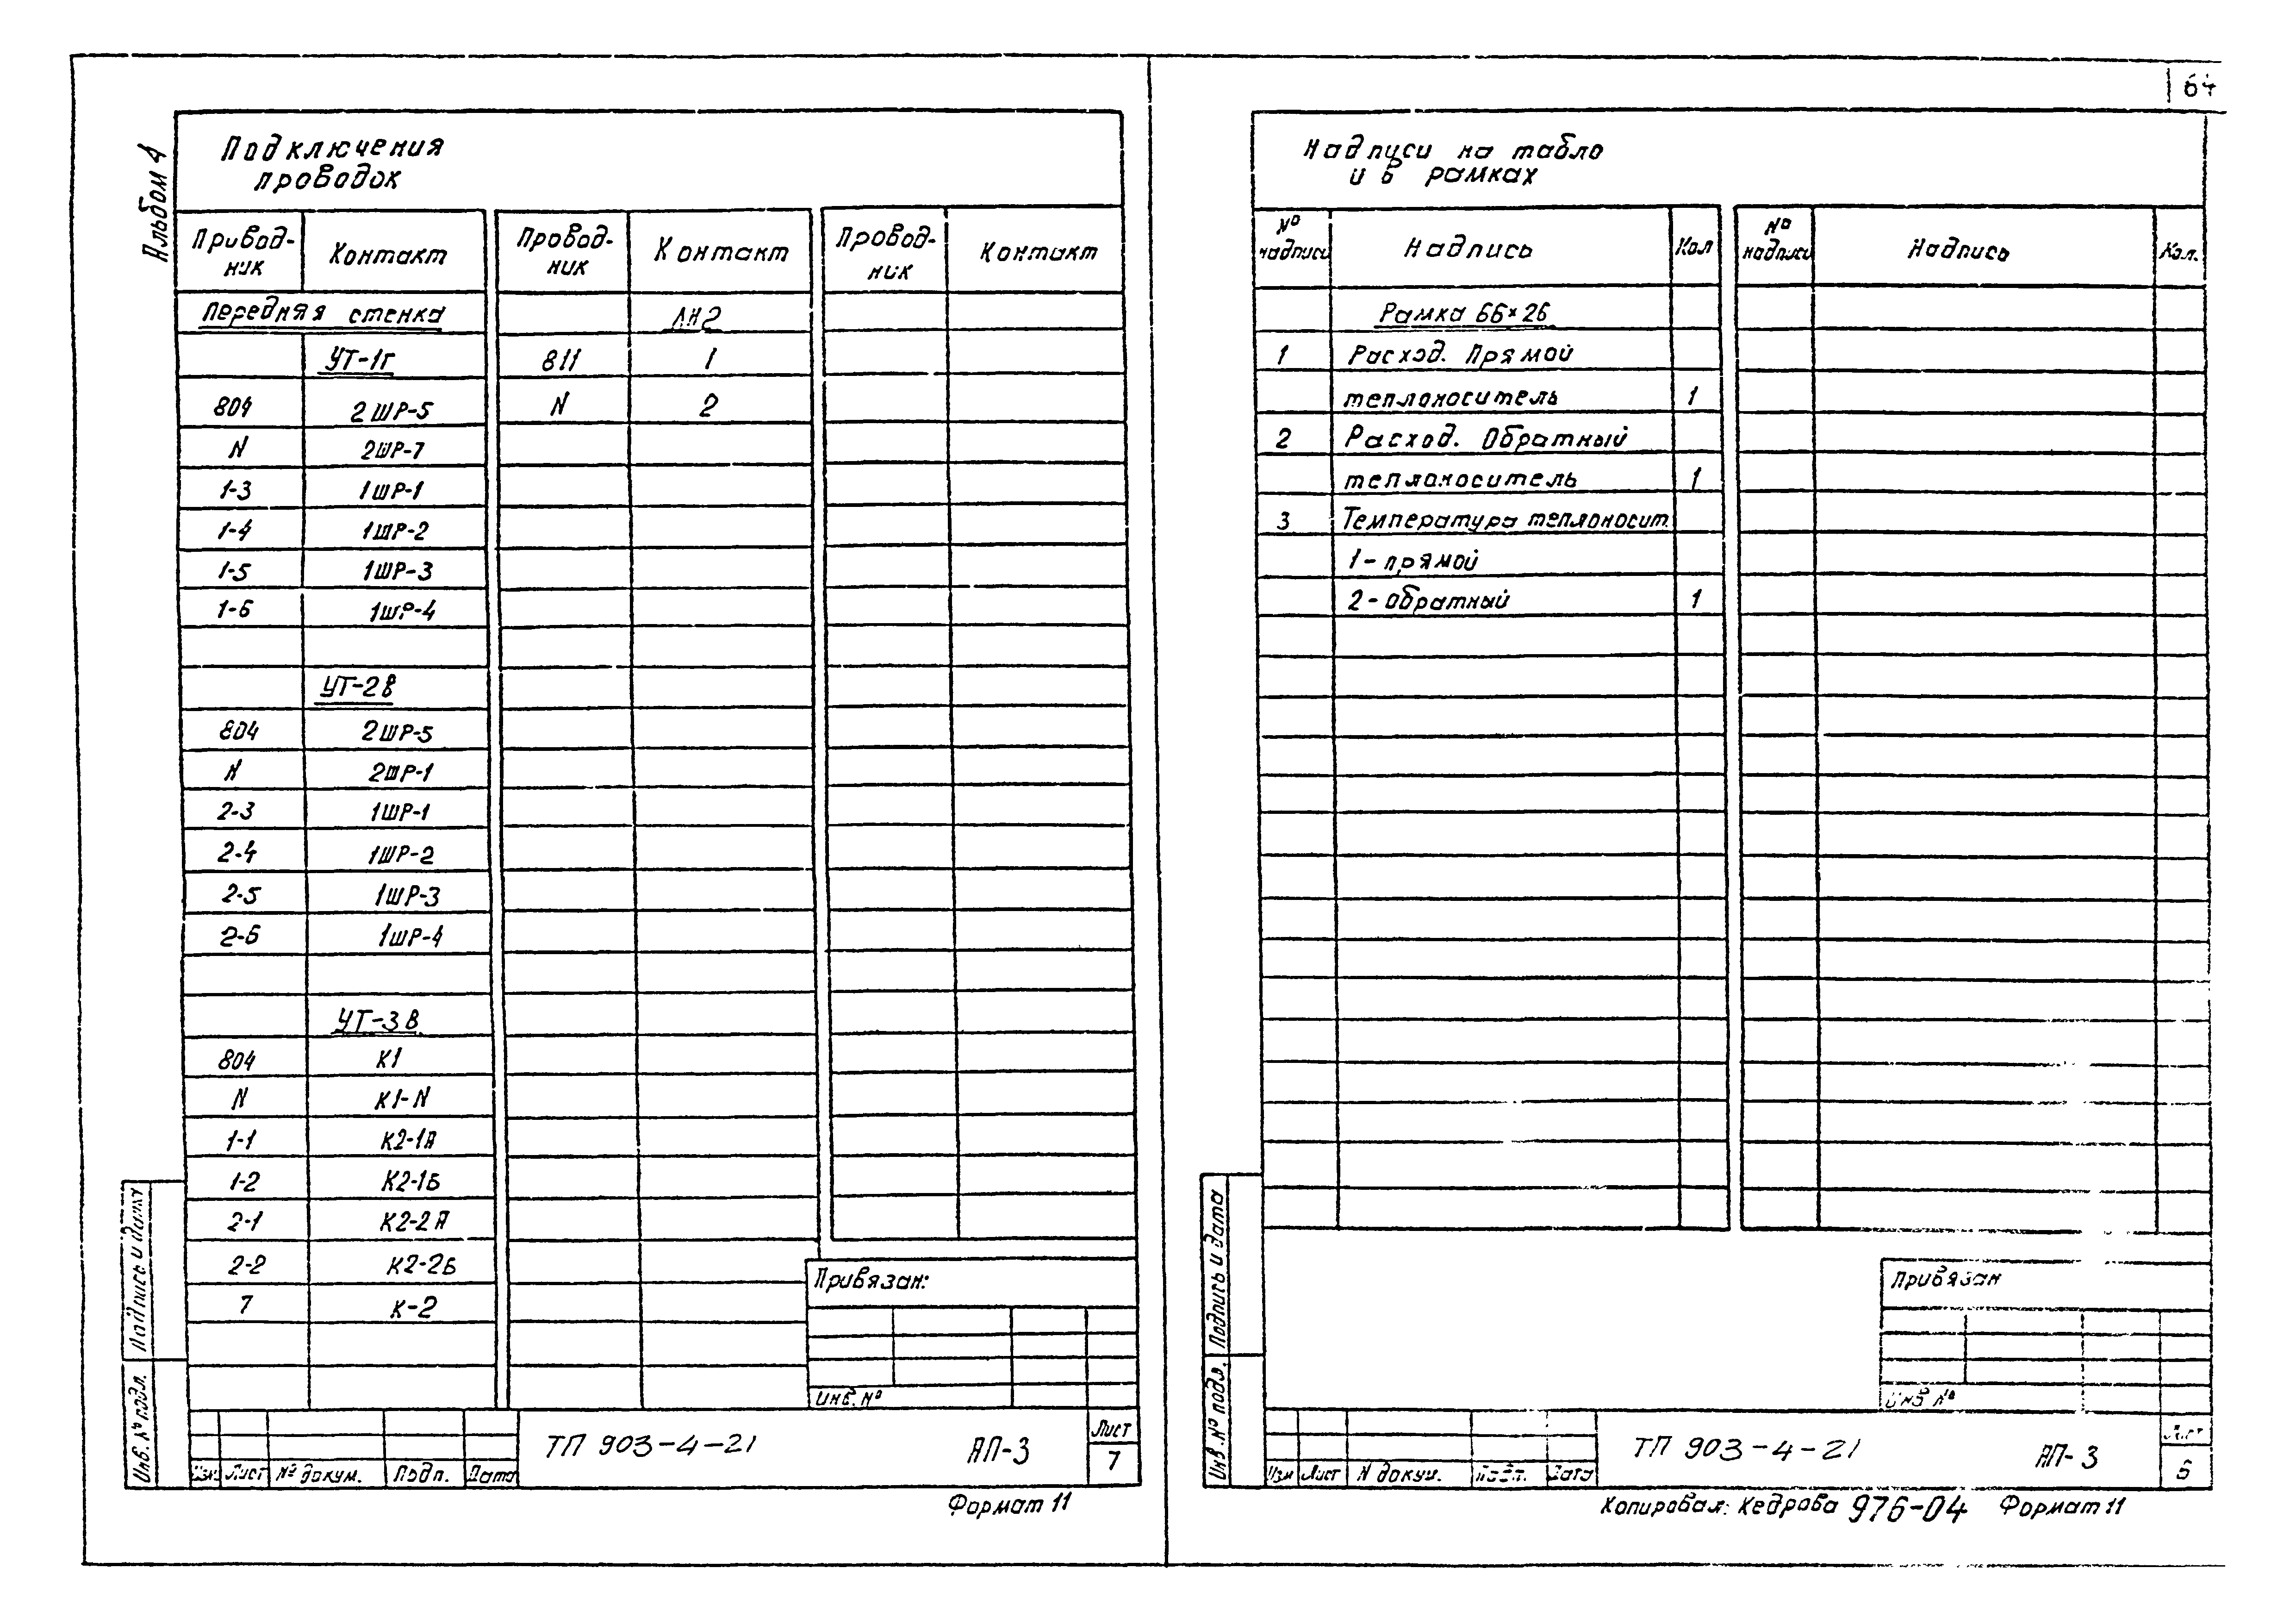 64
Альбом 4
Подключения
проводок
Провод-
ник
Контакт
Провод-
ник
Контакт
Провод-
ник
Контакт
Передняя стенка
УТ-1г
804 2ШР-5
N 2ШР-7
1-3 1ШР-1
1-4 1ШР-2
1-5 1ШР-3
1-6 1ШР-4
УТ-2в
804 2ШР-5
N 2ШР-1
2-3 1ШР-1
2-4 1ШР-2
2-5 1ШР-3
2-6 1ШР-4
УТ-3в
804 К1
N К1-N
1-1 К2-1А
1-2 К2-1Б
2-1 К2-2А
2-2 К2-2Б
7 К-2
ЛН2
811 1
N 2
Привязан:
Инв. №
Подпись и дата
Инв. № подл.
Изм Лист № докум. Подп. Дата
ТП 903-4-21 АП-3
Лист
7
Формат 11
Надписи на табло
и в рамках
№
надписи
Надпись
Кол
№
надписи
Надпись
Кол.
Рамка 66×26
1 Расход. Прямой
теплоноситель 1
2 Расход. Обратный
теплоноситель 1
3 Температура теплоносит.
1- прямой
2- обратный 1
Привязан
Инв №
Подпись и дата
Инв. № подл.
Изм Лист N докум. Подп. Дата
ТП 903-4-21 АП-3
Лист
Копировал: Кедрова 976-04 Формат 11